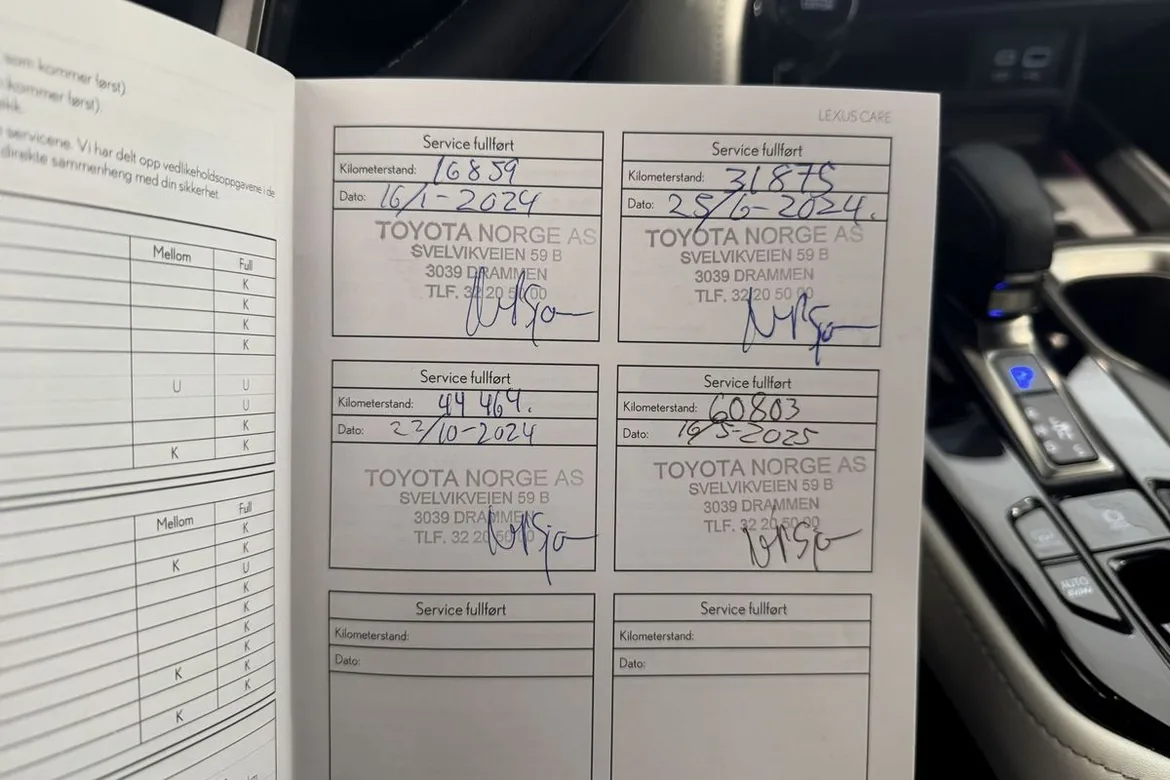 som kommer først)
kommer først).
servicene. Vi har delt opp vedlikeholdsoppgavene i de
direkte sammenheng med din sikkerhet.
Mellom Full
K
K
K
K
U U
U
K
K K
Mellom Full
K
K U
K
K
K
K
K K
K
K
LEXUS CARE
Service fullført
Kilometerstand: 16859
Dato: 16/1-2024
TOYOTA NORGE AS
SVELVIKVEIEN 59 B
3039 DRAMMEN
TLF. 32 20 50 00
Service fullført
Kilometerstand: 31875
Dato: 25/6-2024.
TOYOTA NORGE AS
SVELVIKVEIEN 59 B
3039 DRAMMEN
TLF. 32 20 50 00
Service fullført
Kilometerstand: 44 464.
Dato: 22/10-2024
TOYOTA NORGE AS
SVELVIKVEIEN 59 B
3039 DRAMMEN
TLF. 32 20 50 00
Service fullført
Kilometerstand: 60803
Dato: 16/5-2025
TOYOTA NORGE AS
SVELVIKVEIEN 59 B
3039 DRAMMEN
TLF. 32 20 50 00
Service fullført
Kilometerstand:
Dato:
Service fullført
Kilometerstand:
Dato:
P
AUTO